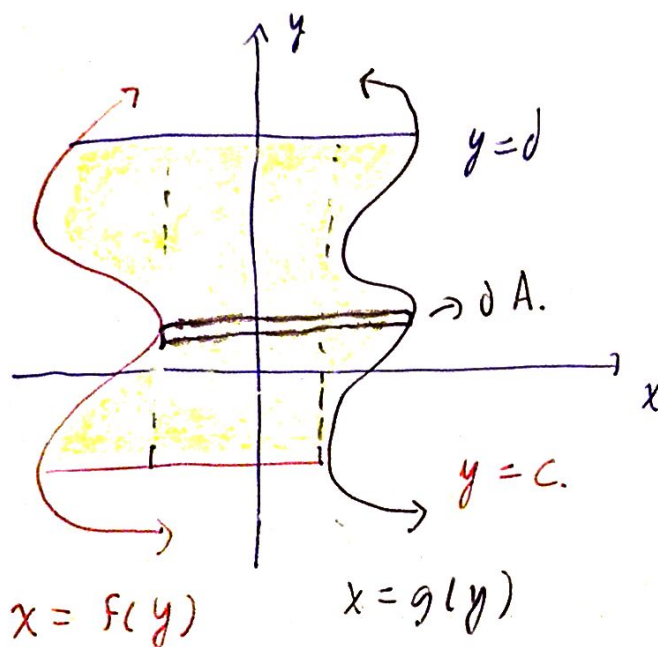 y
y=d
→ dA.
x
y=c.
x = f(y)
x=g(y)